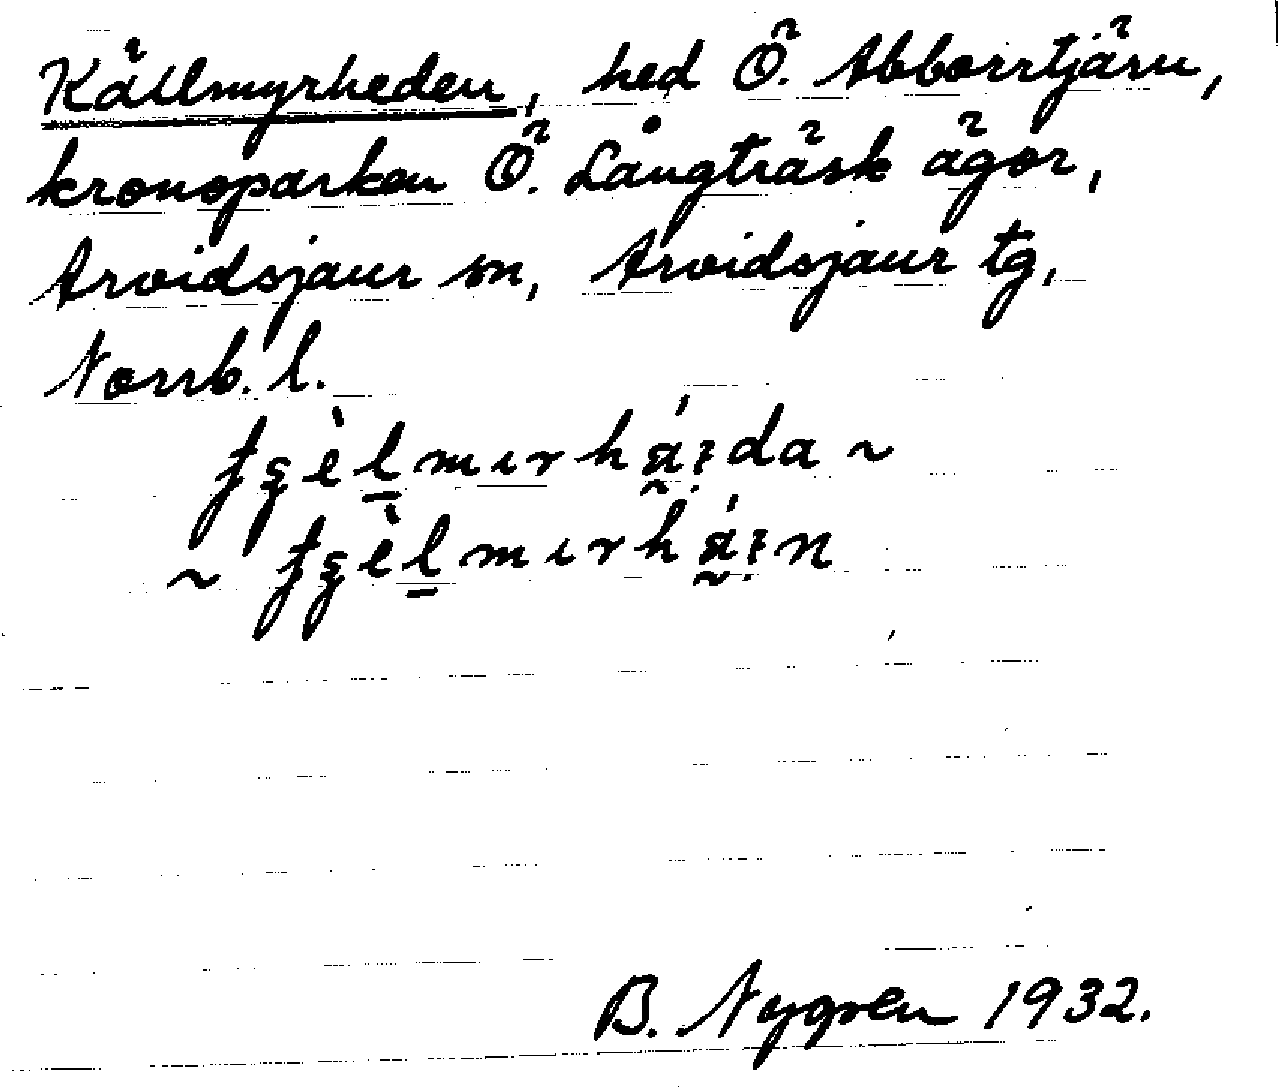 Källmyrheden, hed Ö. Abborrtjärn,
kronoparken Ö. Långträsk ägor,
Arvidsjaur sn, Arvidsjaur tg,
Norrb. l.
B. Nygren 1932.